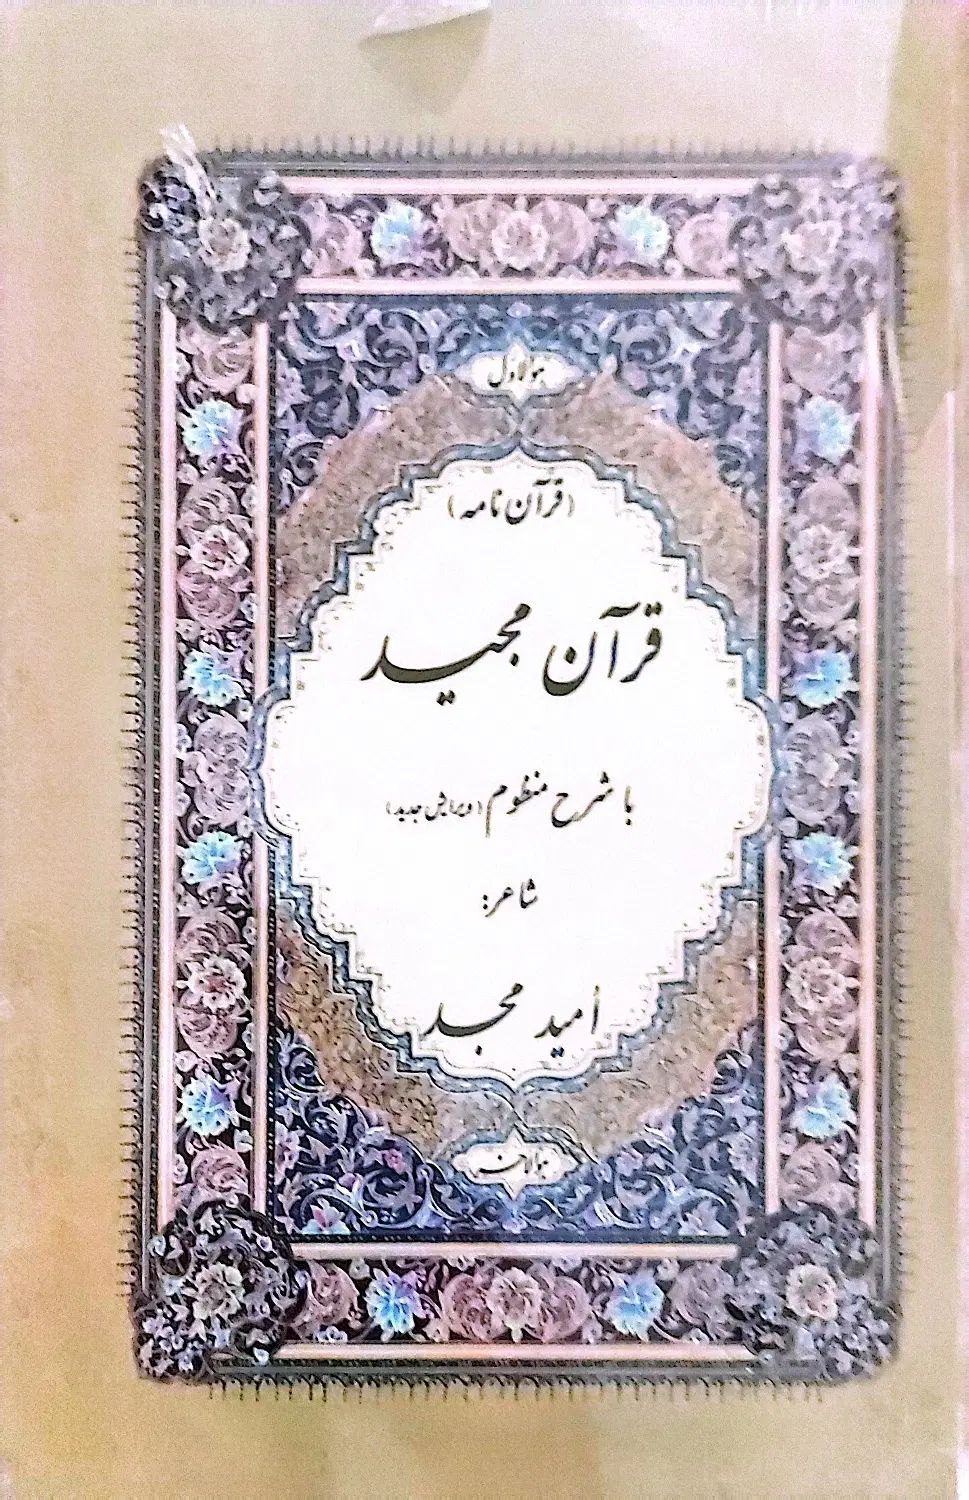 هوالاول
(قرآن نامه)
قرآن مجید
با شرح منظوم (ویرایش جدید)
شاعر:
اُمید مجد
هوالآخر